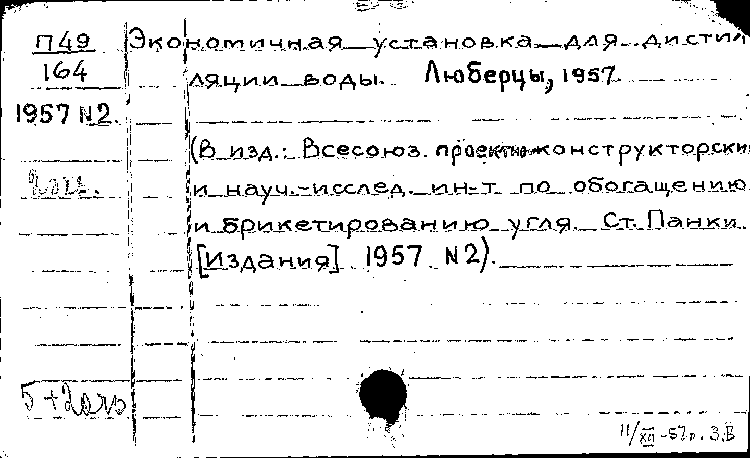 П49
164
1957 N2.
Экономичная установка для дистил
ляции воды. Люберцы, 1957.
(В изд.: Всесоюз. проектно-конструкторски
и науч.-исслед. ин-т по обогащению
и брикетированию угля. Ст. Панки.
[Издания] 1957 N2).
11/XII-57г. З.В